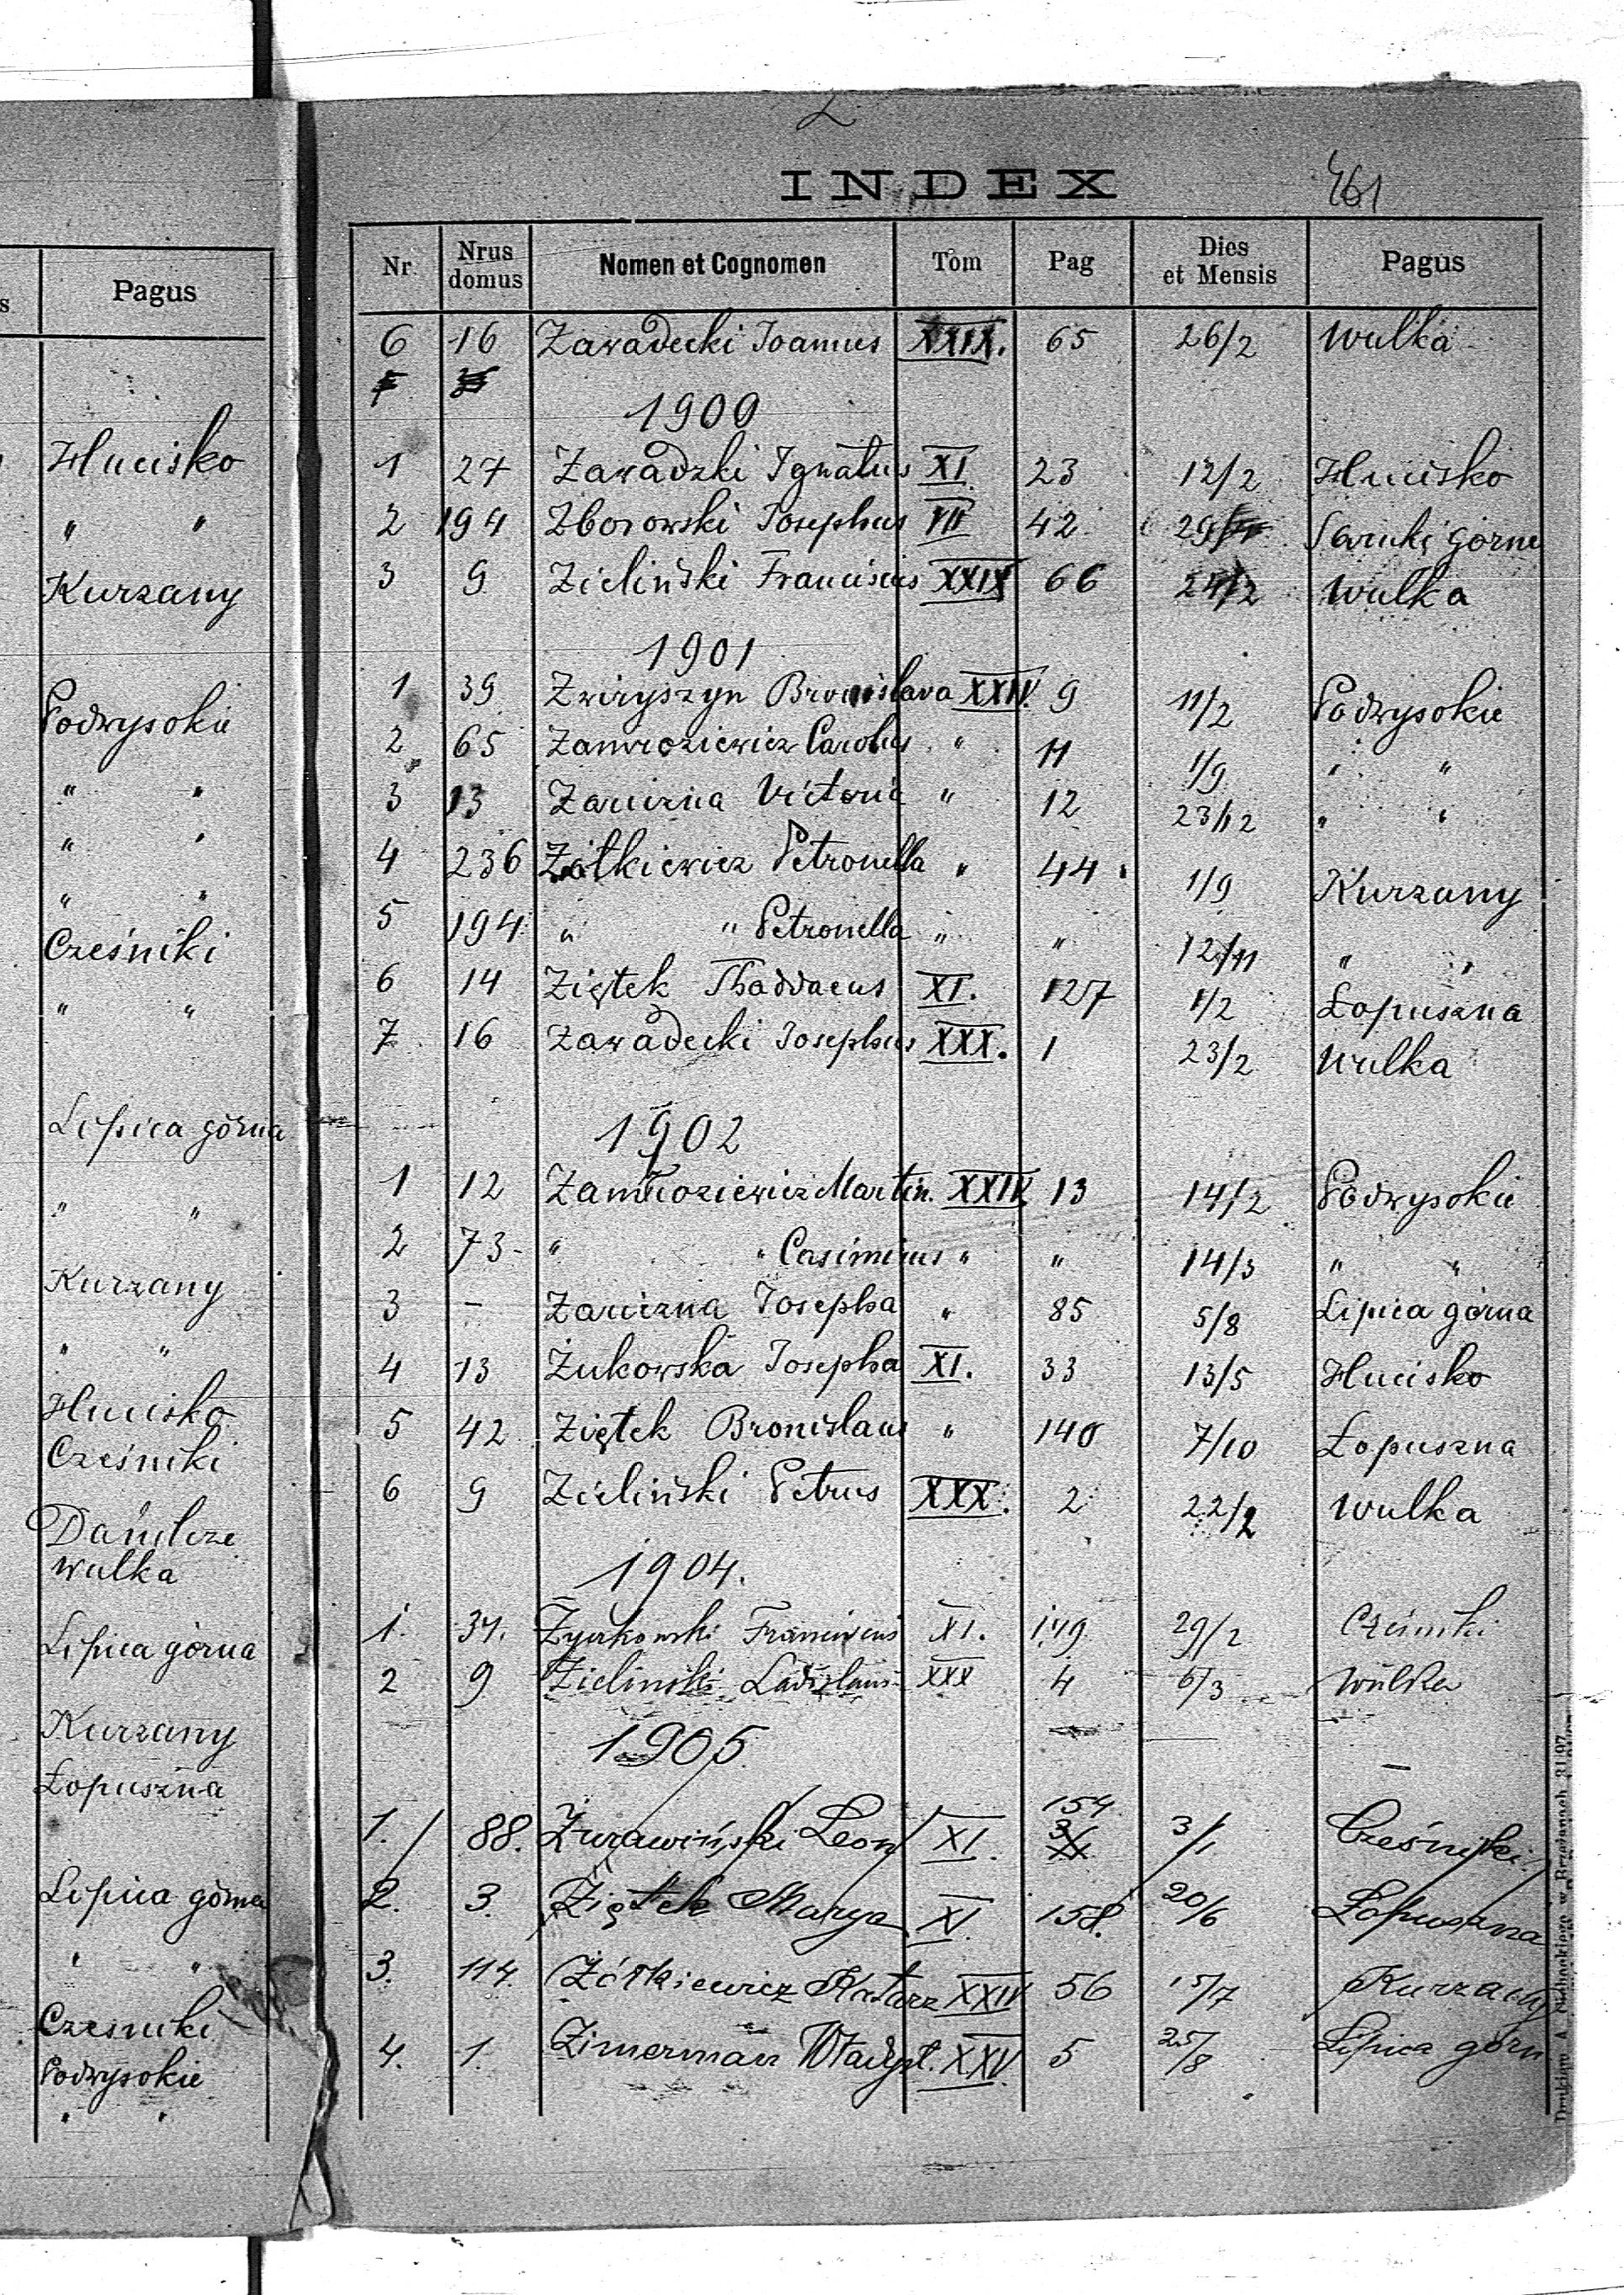 Pagus
Hucisko
" "
Kurzany
Podwysokie
" "
" "
" "
Cześniki
" "
Lipica górna
" "
Kurzany
" "
Hucisko
Cześniki
Danilcze
Wulka
Lipica górna
Kurzany
Łopuszna
Lipica górna
" "
Czesniki
Podwysokie
" "
Z
INDEX 461
Nr. Nrus domus Nomen et Cognomen Tom Pag Dies et Mensis Pagus
6 16 Zawadecki Joannes XXIX. 65 26/2 Wulka
1900
1 27 Zawadzki Ignatius XI 23 12/2 Hucisko
2 194 Zborowski Josephus VII 42 29 Sarnki górne
3 9 Zieliński Franciscus XXIX 66 Wulka
1901
1 39 Zwiryszyn Bronislava XXIV. 9 11/2 Podwysokie
2 65 Zamroziewicz Carolus " 11 1/9 " "
3 13 ZarIczna Victoria " 12 23/12 " "
4 236 Żółkiewicz Petronella " 44 1/9 Kurzany
5 194 " " Petronella " " 12/11 " "
6 14 Ziętek Thaddaeus XI. 127 1/2 Łopuszna
7 16 Zawadecki Josephus XXX. 1 23/2 Wulka
1902
1 12 Zamroziewicz Martin. XXIV 13 14/2 Podwysokie
2 73 - " " Casimirus " " 14/3 " "
3 - Zariczna Josepha " 85 5/8 Lipica górna
4 13 Żukowska Josepha XI. 33 13/5 Hucisko
5 42 Ziętek Bronislaus " 140 7/10 Łopuszna
6 9 Zieliński Petrus XXX. 2 22/2 Wulka
1904.
1. 34. Franciscus XI. 149 29/2 Cześniki
2 9 Zieliński Ladislaus XXX 4 6/3 Wulka
1905
1. 88. Żurawiński Leon XI. 154 3/1 Cześniki
2. 3. Ziętek Marya XI. 158. 20/6 Łopuszna
3. 114. Żółkiewicz Katarz XXIV 56 15/7 Kurzany
4. 1. Zimerman Władysł. XXV 5 25/8 Lipica górn